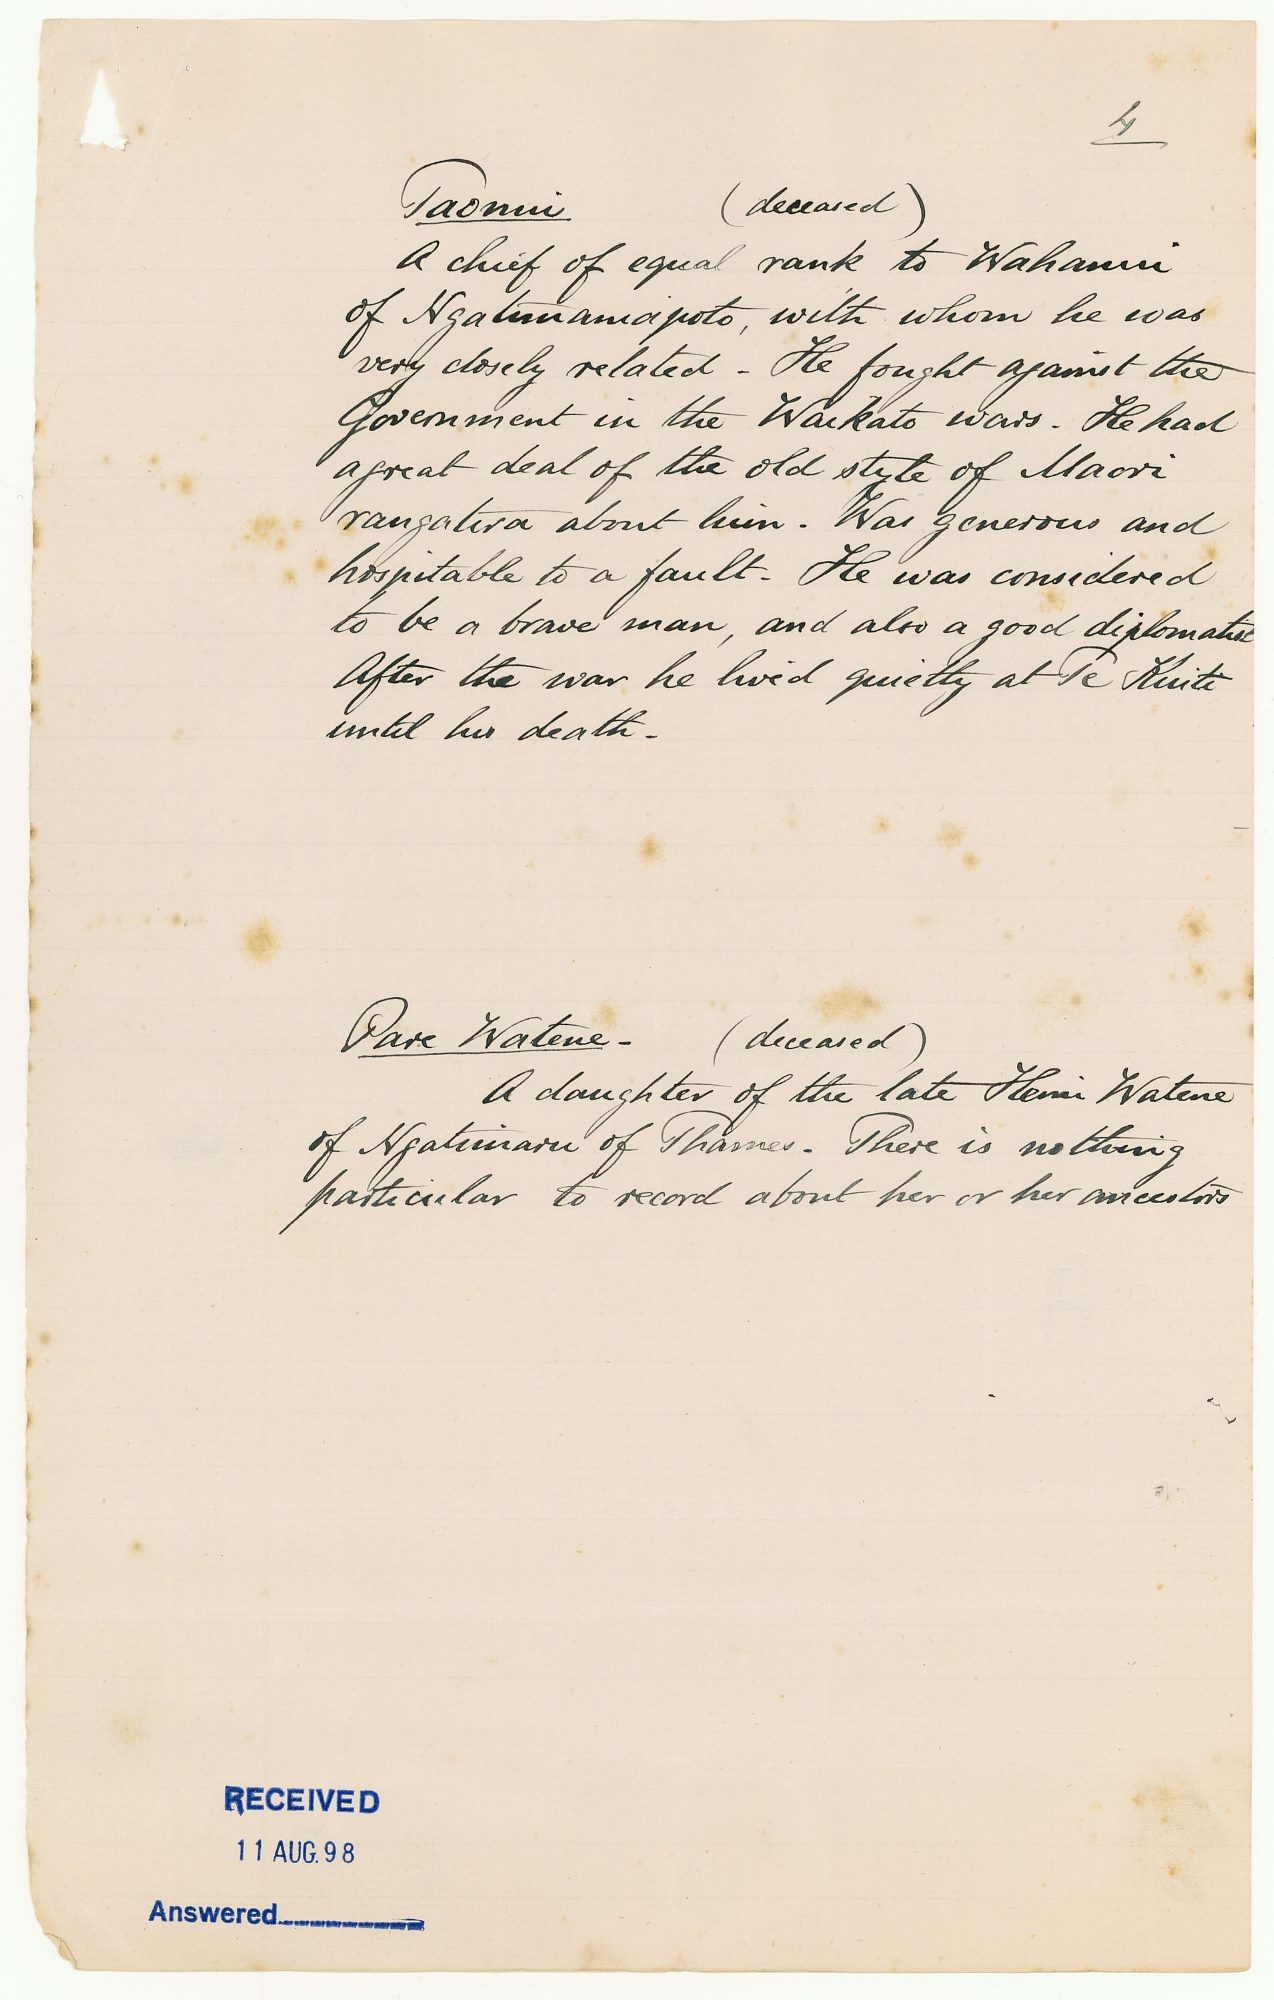 4
Taonui (deceased)
A chief of equal rank to Wahanui
of Ngatimaniapoto, with whom he was
very closely related - He fought against the
Government in the Waikato wars. He had
a great deal of the old style of Maori
rangatira about him. Was generous and
hospitable to a fault. He was considered
to be a brave man, and also a good diplomatist
After the war he lived quietly at Te Kuiti
until his death.
Pare Watene - (deceased)
A daughter of the late Hemi Watene
of Ngatimaru of Thames. There is nothing
particular to record about her or her ancestors
RECEIVED
11 AUG.98
Answered